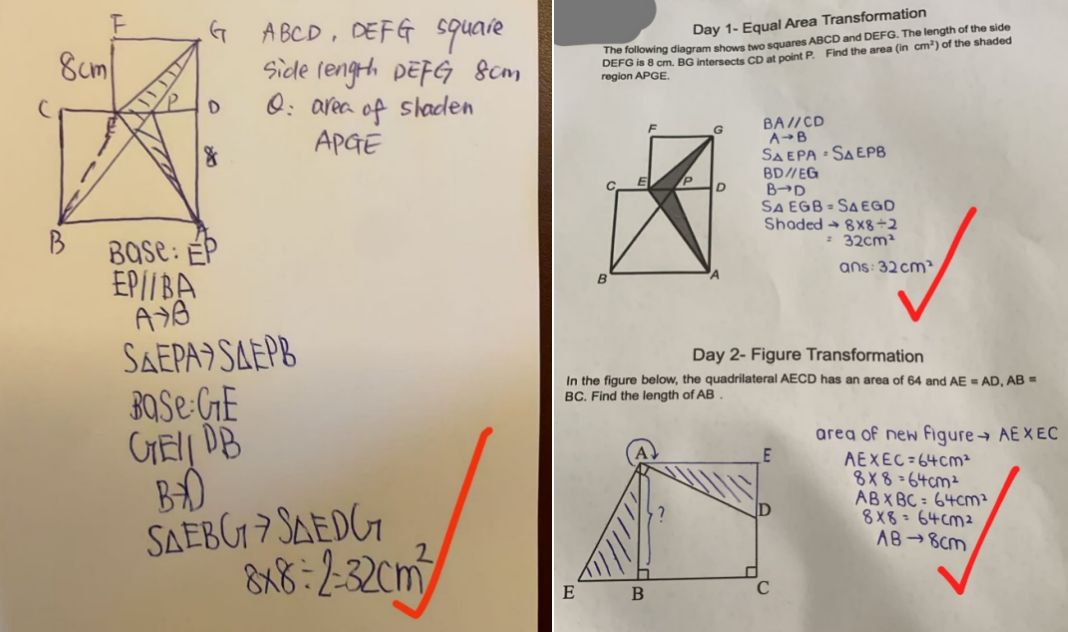 F
G
ABCD, DEFG square
8cm
side length DEFG 8cm
C
E
P
D
Q: area of shaden
APGE
8
B
A
Base: EP
EP//BA
A→B
S△EPA→S△EPB
Base:GE
GE//DB
B→D
S△EBG→S△EDG
8×8÷2=32cm²
Day 1- Equal Area Transformation
The following diagram shows two squares ABCD and DEFG. The length of the side
DEFG is 8 cm. BG intersects CD at point P. Find the area (in cm²) of the shaded
region APGE.
F
G
C
E
P
D
B
A
BA//CD
A→B
S△EPA = S△EPB
BD//EG
B→D
S△EGB = S△EGD
Shaded → 8×8÷2
= 32cm²
ans: 32cm²
Day 2- Figure Transformation
In the figure below, the quadrilateral AECD has an area of 64 and AE = AD, AB =
BC. Find the length of AB .
A
E
D
?
E
B
C
area of new figure → AE×EC
AE×EC = 64cm²
8×8 = 64cm²
AB×BC = 64cm²
8×8 = 64cm²
AB → 8cm